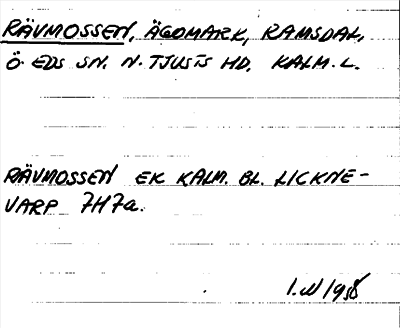 RÄVMOSSEN, ÄGOMARK, RAMSDAL,
Ö. EDS SN. N. TJUSTS HD. KALM. L.
RÄVMOSSEN EK KALM. BL. LICKNE-
VARP 7H7a.